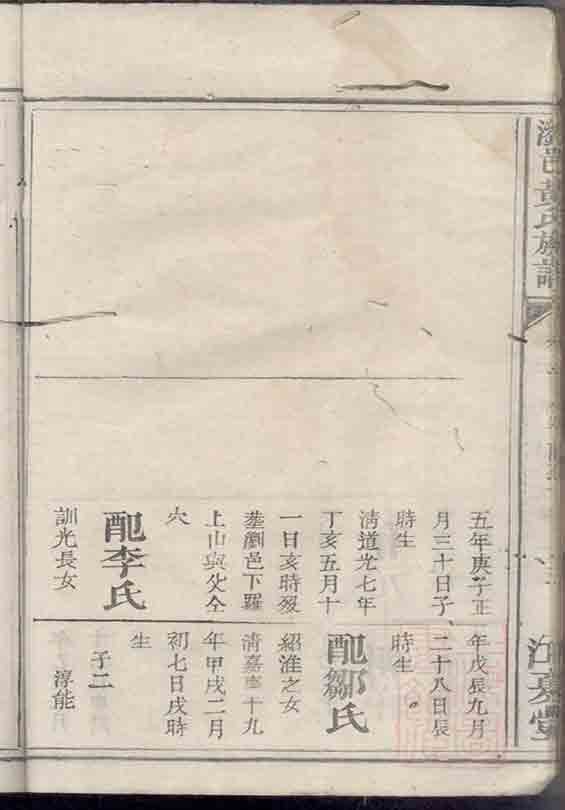 瀏邑黃氏族譜
五年庚子正
月三十日子
時生
清道光七年
丁亥五月十
一日亥時歿
塟劉邑下羅
上山與父仝
穴
配李氏
訓光長女
年戊辰九月
二十八日辰
時生
配鄒氏
紹淮之女
清嘉慶十九
年甲戌二月
初七日戌時
生
子二
淳能